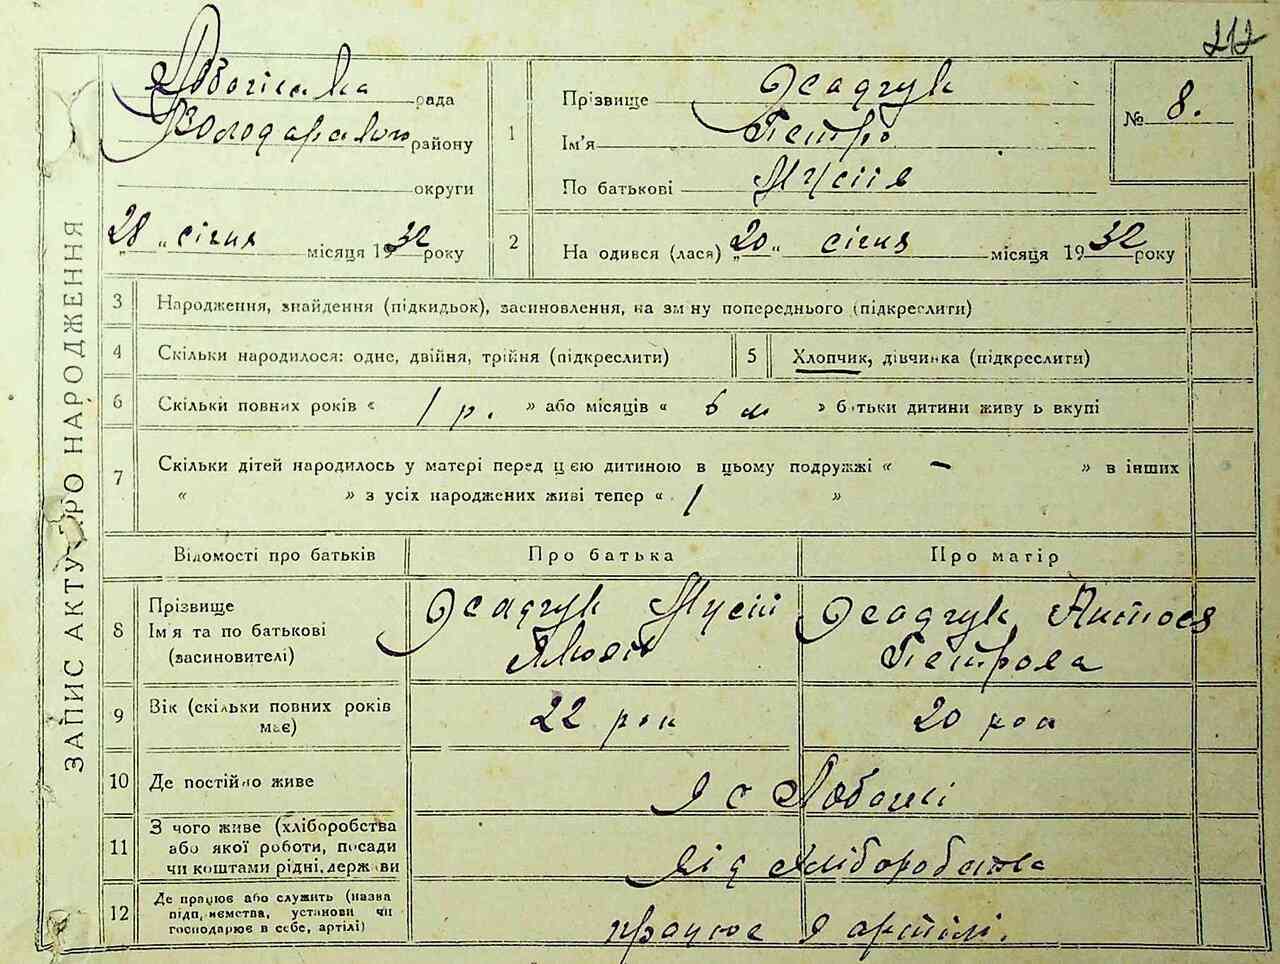 212
ЗАПИС АКТУ ПРО НАРОДЖЕННЯ
рада
Володарського району
округи
„28„ січня місяця 1932 року
1
Прізвище Осадчук
Ім'я Петро
По батькові Мусія
№ 8.
2
На одився (лася) „20„ січня місяця 1932 року
3 Народження, знайдення (підкидьок), засиновлення, на зм ну попереднього (підкреслити)
4 Скільки народилося: одне, двійня, трійня (підкреслити)
5 Хлопчик, дівчинка (підкреслити)
6 Скільки повних років « 1 р. » або місяців « 6 м » б тьки дитини живу ь вкупі
7 Скільки дітей народилось у матері перед цією дитиною в цьому подружжі « — » в інших
« » з усіх народжених живі тепер « 1 »
Відомості про батьків
Про батька
Про матір
8
Прізвище
Ім'я та по батькові
(засиновителі)
Осадчук Мусій
Осадчук Антося
Петрова
9
Вік (скільки повних років
має)
22 рок
20 рок
10 Де постійно живе
в с
11
З чого живе (хліборобства
або якої роботи, посади
чи коштами рідні, держави
від хліборобства
12
Де працює або служить (назва
підприємства, установи чи
господарює в себе, артілі)
працює в артілі.